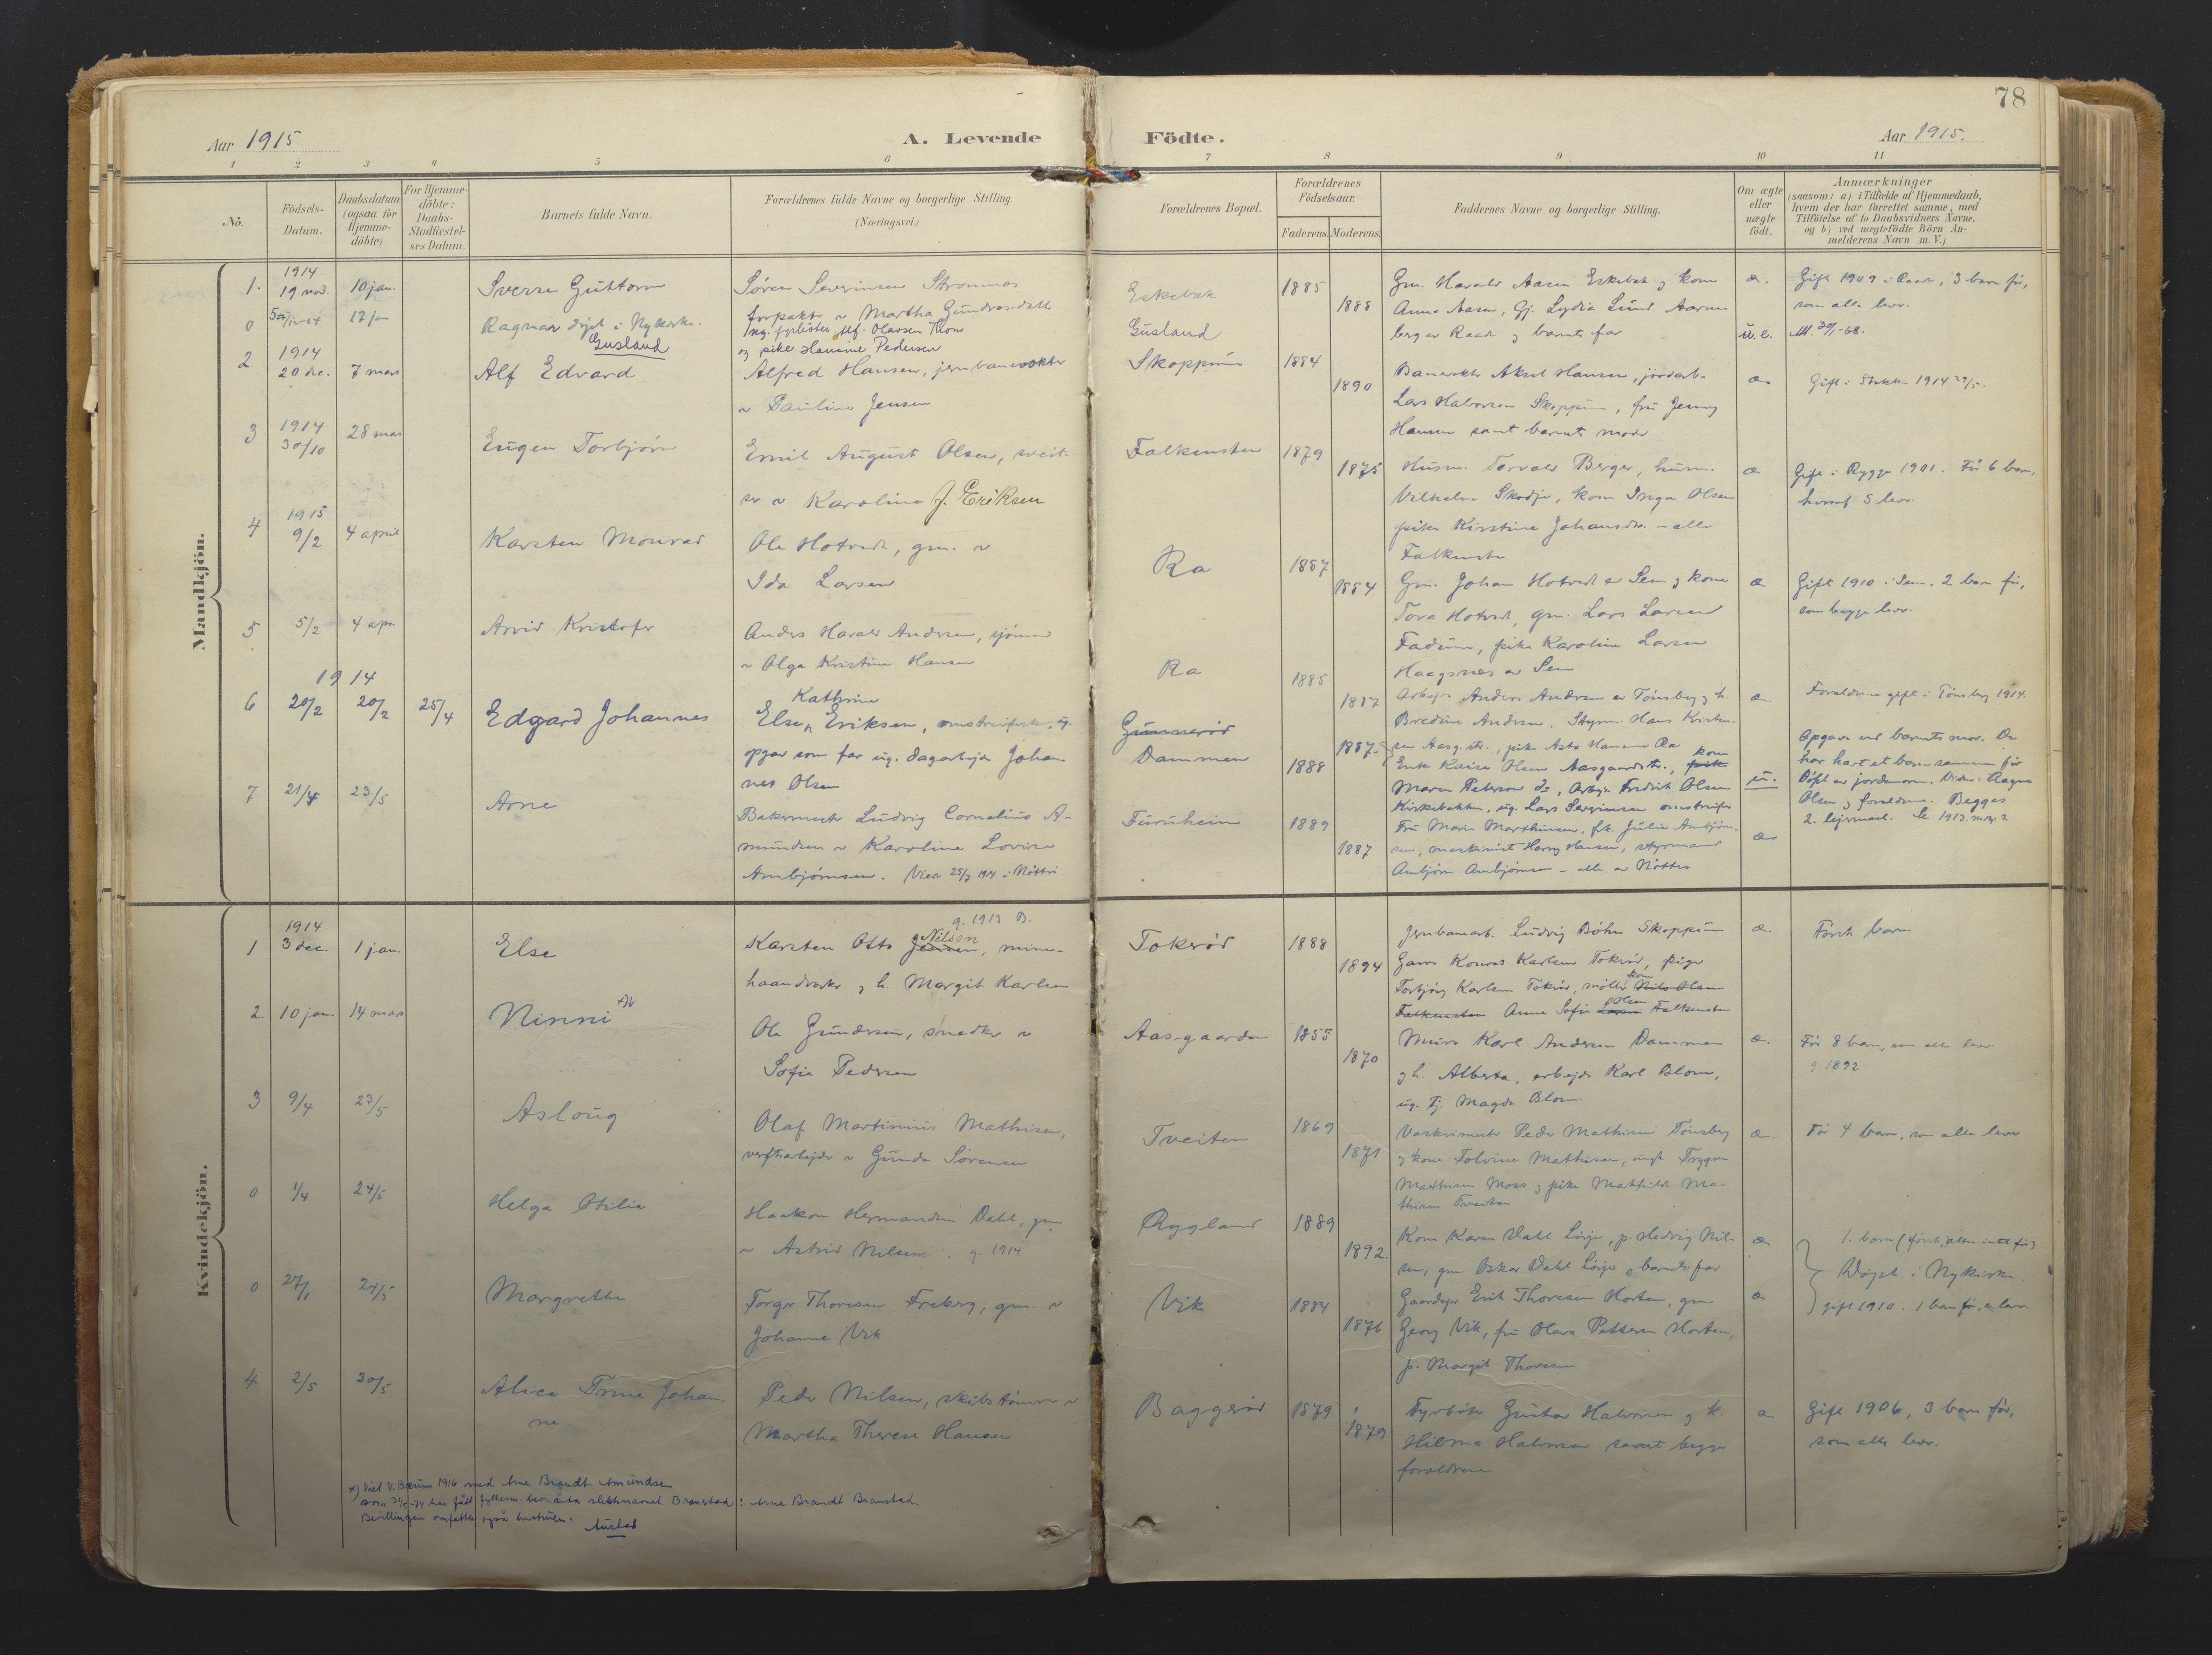 78
Aar 1915
A. Levende Födte.
Aar 1915.
1 2 3 4 5 6 7 8 9 10 11
No.
Födsels-Datum.
Daabsdatum (ogsaa for Hjemme-döbte)
For Hjemme-döbte: Daabs-Stadfæstel-ses Datum.
Barnets fulde Navn.
Forældrenes fulde Navne og borgerlige Stilling
(Næringsvei.)
Forældrenes Bopæl.
Forældrenes Födselsaar.
Faderens. Moderens.
Faddernes Navne og borgerlige Stilling.
Om ægte eller uægte födt.
Anmærkninger
(saasom: a) i Tilfælde af Hjemmedaab,
hvem der har forrettet samme, med
Tilföielse af to Daabsvidners Navne.
og b) ved uægtefödte Börn An-
melderens Navn m. V.)
Mandkjön.
1. 1914 19 nov. 10 jan. Sverre Guttorm
Søren Severinsen Strømnes
forpakter Martha Gundersdatter
Eskebæk 1885 1888
Gm. Harald Aasen Eskebæk og kone
Anna Aasen, Gj. Lydia Lund
og barnets far
æ.
Gift 1909 i Raade, 3 barn før,
som alle lever.
0 12 jan Ragnar døpt i Nykirke.
Gusland
ug. fyrbøter Alf. Olausen Thon
og pike Hansine Pedersen
Gusland
u.e.
2 1914 20 de. 7 mars Alf Edvard
Alfred Hansen, jernbanevokter
Pauline Jensen
Skoppum 1884 1890
Banevokter Aksel Hansen, jordarb.
Lars Halvorsen Skoppum, fru Jenny
Hansen samt barnets moder
æ
Gift i Stokke 1914
3 1914 30/10 28 mars Eugen Torbjørn
Emil August Olsen, sveit-
ser Karoline J. Eriksen
Falkensten 1879 1875
Husm. Torvald Berger, husm.
Vilhelm Skodje, kone Inga Olsen
pike Kirstine Johansdtr. - alle
Falkensten
æ
Gift i Rygge 1901. Før 6 barn,
hvoraf 5 lever.
4 1915 9/2 4 april Karsten Monrad
Ole Hotvedt, gm.
Ida Larsen
Ra 1887 1884
Gm. Johan Hotvedt av Sem og kone
Tora Hotvedt, gm. Lars Larsen
Fadum, pike Karoline Larsen
Haagsnes av Sem
æ
Gift 1910 i Sem. 2 barn før,
som begge lever.
5 5/2 4 apr. Arvid Kristofer
Anders Harald Andersen, sjømand
Olga Kristine Hansen
Ra 1885 1887
Anders Andersen av Tønsberg og h.
Bredine Andersen. Styrm. Hans Kristen-
sen Aasg.str., pike Asta Hansen Ra
æ.
Forældrene gift i Tønsberg 1914.
6 1914 20/2 20/2 25/4 Edgard Johannes
Else Kathrine Eriksen, omstreiferske, ug.
opgav som far ug. dagarbejder Johan-
nes Olsen
Gunnerød
Dammen 1888 1887
Enke Kaisa Olsen Aasgaardstr., kone
Maren Peterson ds, Arbejder Fredrik Olsen
Kirkebakken, ug. Lars Severinsen omstreifer
u.
Opgave ved barnets mor. De
har hat et barn sammen før
Døpt av jordemoren. Vidner: Ragna
Olsen og forældrene. Begges
2. lejermaal.
7 21/4 23/5 Arne
Bakermester Ludvig Cornelius A-
mundsen Karoline Lovise
Ambjørnsen. Viede 25/3 1914 i Nøtterø
Furuheim 1889 1887
Fru Marie Marthinsen, frk. Julia Ambjørn-
sen, maskinist Harry Hansen, styrmand
Ambjørn Ambjørnsen - alle av Nøtterø
æ
Kvindekjön.
1 1914 3 dec. 1 jan. Else
g. 1913 B.
Karsten Otto Jensen Nilson, mine-
haandverker og h. Margit Karlsen
Tokerød 1888 1894
Jernbanearb. Ludvig Bøhn Skoppum
Konrad Karlsen Tokerød, pige
Torbjørg Karlsen Tokerød, møller Nils Olsen
Falkensten Anna Sofie Olsen Falkensten
æ.
Første barn.
2. 10 jan. 14 mars Ninni x)
Ole Gundersen, snedker
Sofie Pedersen
Aasgaarden 1855 1870
Murer Karl Andersen Dammen
og h. Alberta, arbejder Karl Blom,
ug. tj. Magda Blom.
æ.
Før 8 barn, som alle lever
g. 1892
3 9/4 23/5 Aslaug
Olaf Martinius Mathisen,
verftsarbejder Gunda Sørensen
Tveiten 1869 1871
Peder Mathisen Tønsberg
og kone Tolvine Mathisen, ungk. Trygve
Mathisen Moss og pike Mathilde Ma-
thisen Tveiten
æ.
Før 4 barn, som alle lever
0 1/4 24/5 Helga Otilie
Haakon Hermansen Dahl, gm
Astrid Nilsen. g. 1914
Rygland 1889 1892.
Kone Karen Dahl, p. Hedvig Nil-
sen, gm Oskar Dahl og barnets far
æ
Døpt i Nykirke.
0 27/1 24/5 Margrethe
Torger Thoresen Freberg, gm.
Johanne Vik
Vik 1884 1876
Gaardejer Erik Thoresen Horten, gm
Georg Vik, fru Olava Pettersen Horten,
p. Margit Thoresen
æ
gift 1910. 1 barn før, lever
4 2/5 30/5 Alice Trine Johan-
ne
Peder Nilsen, skibstømrer
Martha Therese Hansen
Baggerød 1879 1879
Fyrbøter Gustav Halvorsen og k.
Hilma Halvorsen samt begge
forældrene
æ
Gift 1906, 3 barn før,
som alle lever.
x) Viet V. Bærum 1916 med Arne Brandt Amundsen
som har fått fylkesm. bev. å ta slektsnavnet Branstad: Arne Brandt Branstad.
Bevillingen omfatter også hustruen.